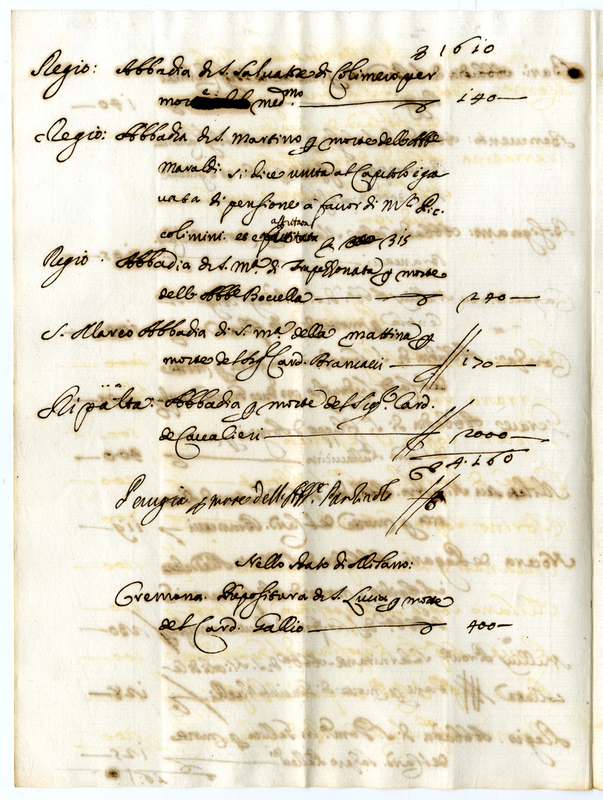 1610
Regio: Abbadia di S. Salvatore di Colimero per
morte med.mo 140
Regio: Abbadia di S. Martino p morte dell Abb.e
Maraldi. si dice unita al Capitolo i gra
vata di pensione a favor di M.r Pic
colimini. et è affittata
315
Regio. Abbadia di S. M.a di Trapessonata p morte
dello Abb.e Boccella 240
S. Marco Abbadia di S. M.a della Mattina p
morte del Sig.r Card. Brancacci 170
Ripalta: Abbadia p morte del Sig.r Card.
de Cavalieri 2000
4.160
Perugia p morte dell'Abb.e
Nello stato di Milano:
Cremona. Prepositura di S. Lucia p morte
del Card. Gallio 400